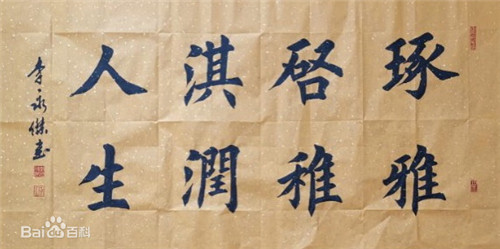 琢雅
啓稚
淇潤
人生
李永傑書
Bai du 百科